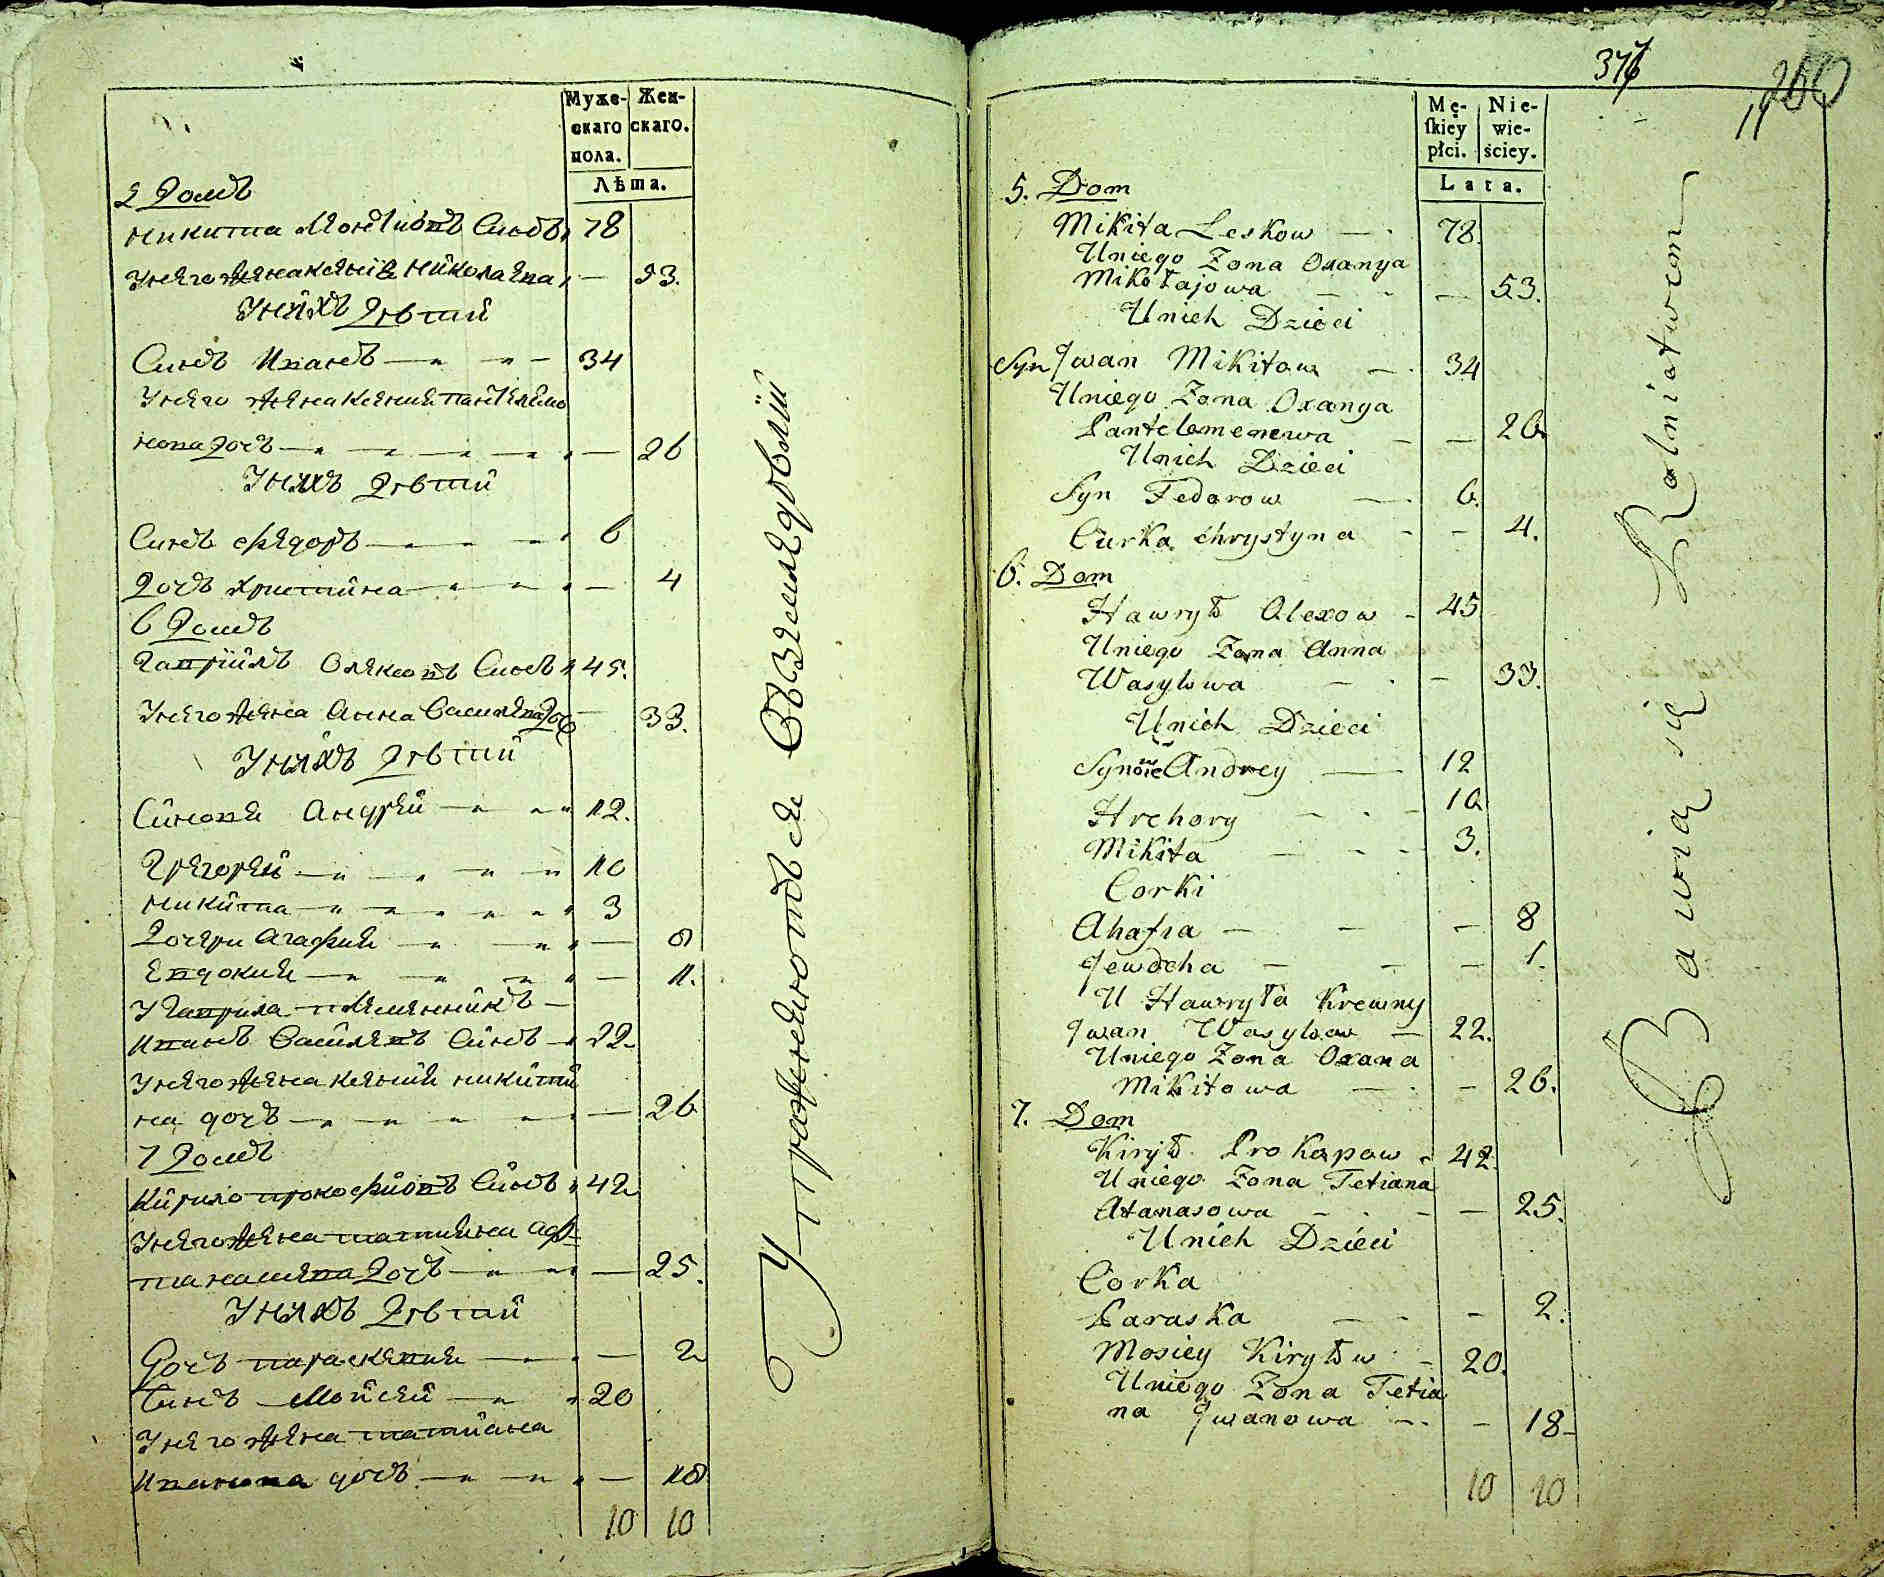 Муже-
скаго
пола.
Жен-
скаго.
Лѣта.
5 Домъ
Никита Леонтиовъ Синъ 78
Унего жена Ксения Николаева — 53.
Унихъ Дѣтий
Синъ Иванъ — 34
Унего жена Ксения Пантелеймо
нова дочь — 26
Унихъ Дѣтий
Синъ Федоръ — 6
Дочь Христина — 4
6 Домъ
Гаврийлъ Олексовъ Синъ 45.
Унего жена Анна Василева Доч — 33.
Унихъ Дѣтий
Синове Андрей — 12.
Григорей — 10
Никита — 3
Дочери Агафия — 8
Евдокия — 1.
У Гаврила племенникъ —
Иванъ Василевъ Синъ — 22
Унего жена Ксения Никити
на дочь — 26
7 Домъ
Кирило Прокофиовъ Синъ 42
Унего жена Татияна Аф
танасиева Дочь — 25.
Унихъ Дѣтий
Дочь Параскевия — 2
Синъ Мойсей — 20
Унего жена Татиана
Иванова дочь — 18
10 10
Упражняются Въ Земледѣлий
376
Mę-
ſkiey
płci.
Nie-
wie-
ściey.
Lata.
5. Dom
Mikita Leskow — 78.
Uniego Zona Oxanya
Mikołajowa — 53.
Unich Dzieci
Syn Jwan Mikitow — 34
Uniego Zona Oxanya
Pantelemenewa — 26
Unich Dzieci
Syn Fedorow — 6.
Curka Chrystyna — 4.
6. Dom
Hawrył Olexow — 45
Uniego Zona Anna
Wasylowa — 33.
Unich Dzieci
Synowie Andrey — 12
Hrehory — 10
Mikita — 3.
Corki
Ahafia — 8
Jewdcha — 1.
U Hawryła Krewny
Jwan Wasylow — 22.
Uniego Zona Oxana
Mikitowa — 26.
7. Dom
Kirył Prokopow 42.
Uniego Zona Tetiana
Atanasowa — 25.
Unich Dzieci
Corka
Paraska — 2.
Mosiey Kiryłow — 20.
Uniego Zona Tetia
na Jwanowa — 18
10 10
Bawią się Rolniatwem